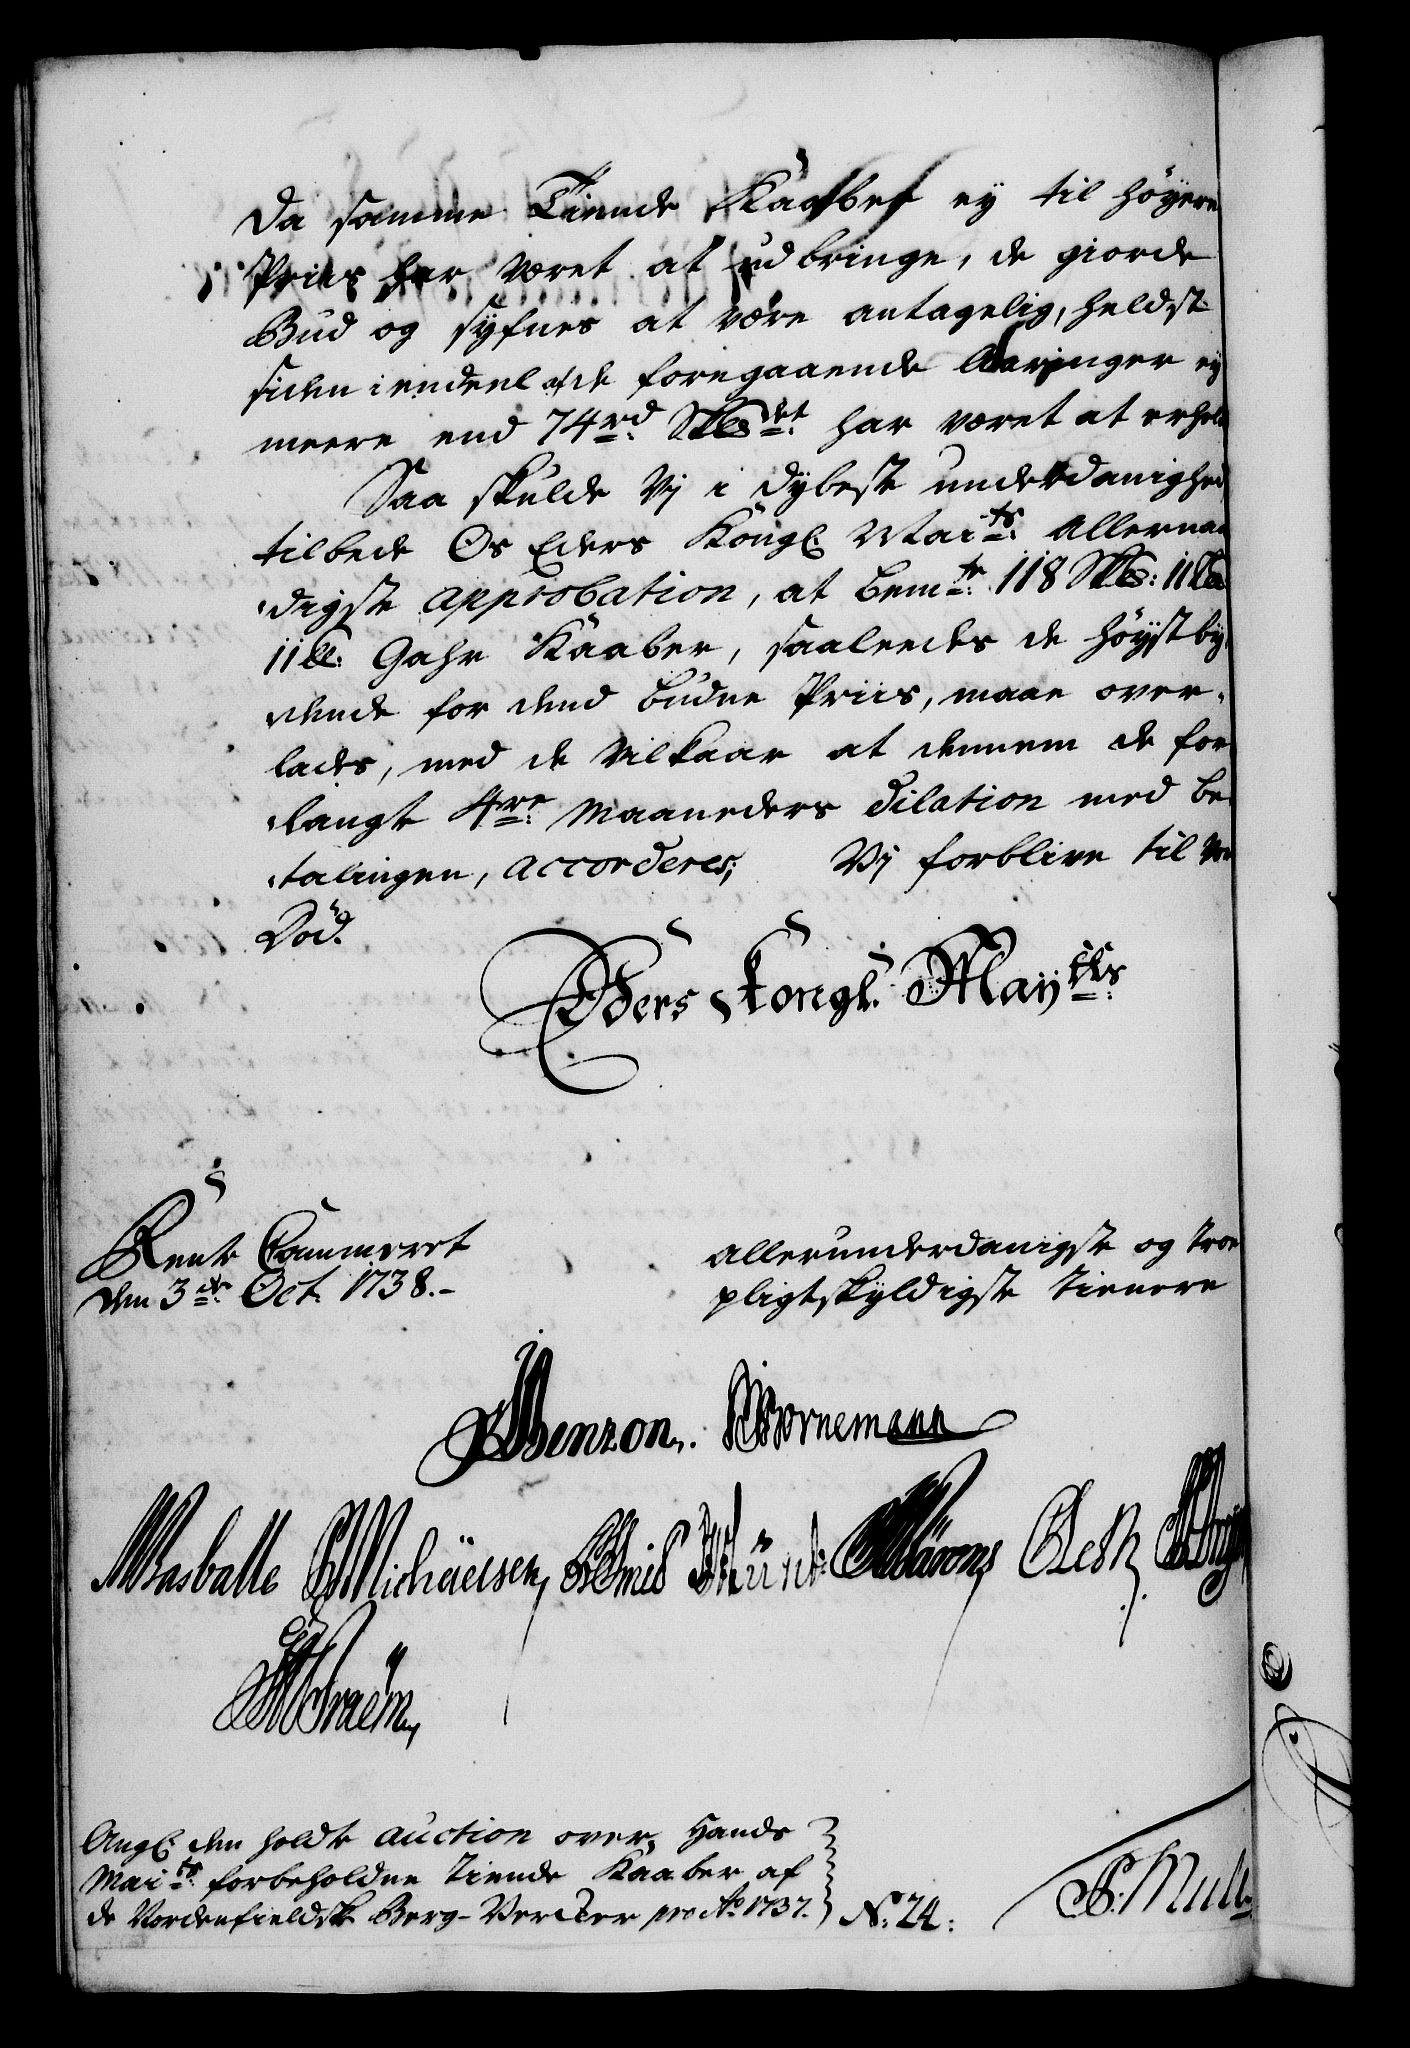 Da samme Tiende Kaaber ey til høyere
Priis har været at udbringe, de giorde
Bud og syfnes at være antagelig, heldst
siden i endeel af de foregaaende Aaringer ey
meere end 74 rd Sk℔det har været at erhol
Saa skulde Vj i dybeste underdanighed
tilbede Os Eders Kongl: Maits: Allernaa
digste approbation, at bemte: 118 Sk℔: 11 L℔
11 ℔: Gahr Kaaber, saaledes de høystby,
dende for dend budne Priis, maae over,
lades, med de Vilkaar at dennem de for
langte 4re: Maaneders Dilation med be
talingen, accorderes; Vj forblive til vor
Död.
Eders Kongl: Mayts:
Rente Cammeret
den 3die: Oct: 1738.-
allerunderdanigste og troe
pligtskyldigste tienere
Benzon. Bornemann
Basballe Michaelsen Smid
Fraem
Angl: den holdte Auction over, Hands
Maits: forbeholdne Tiende Kaaber af
de Nordenfieldske Berg-Vercker pro Ao 1737.
N: 24:
Mull